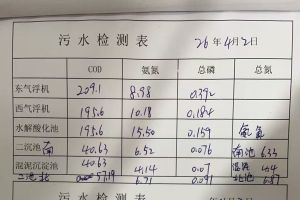 污水检测表 26年4月2日
COD 氨氮 总磷 总氮
东气浮机 209.1 8.98 0.392
西气浮机 195.6 10.18 0.184
水解酸化池 195.6 15.50 0.159 氨氮
二沉池南 40.63 6.52 0.076 南池 6.33
混泥沉淀池 40.63 4.14 0.07 4.14
二池北 57.19 6.71 0.091 北池 6.87
污水检测表